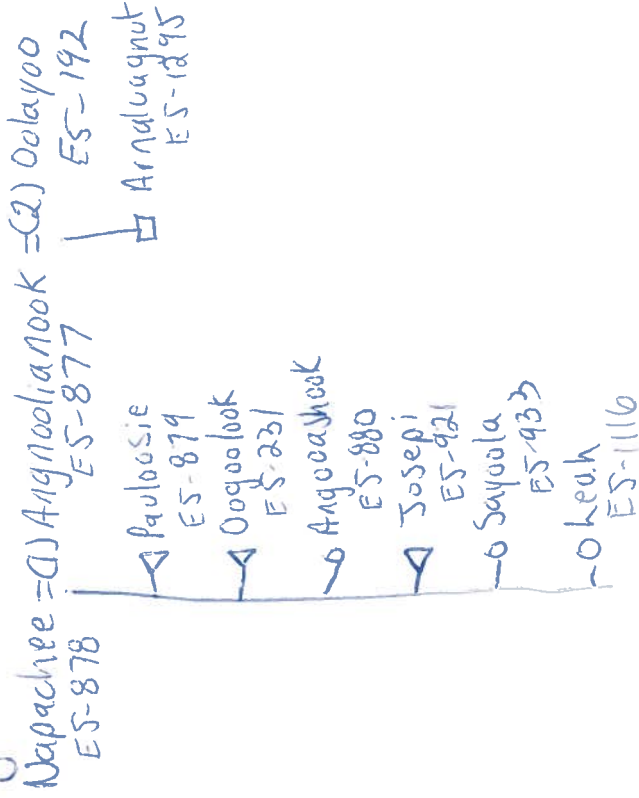 Napachee =(1) Angnoolianook =(2) Oolayoo
E5-878
E5-877
E5-192
Pauloosie
E5-879
Oogoolook
E5-231
Angooashook
E5-880
Josepi
E5-921
Sayoola
E5-933
Leah
E5-1116
Arnaluagnut
E5-1295